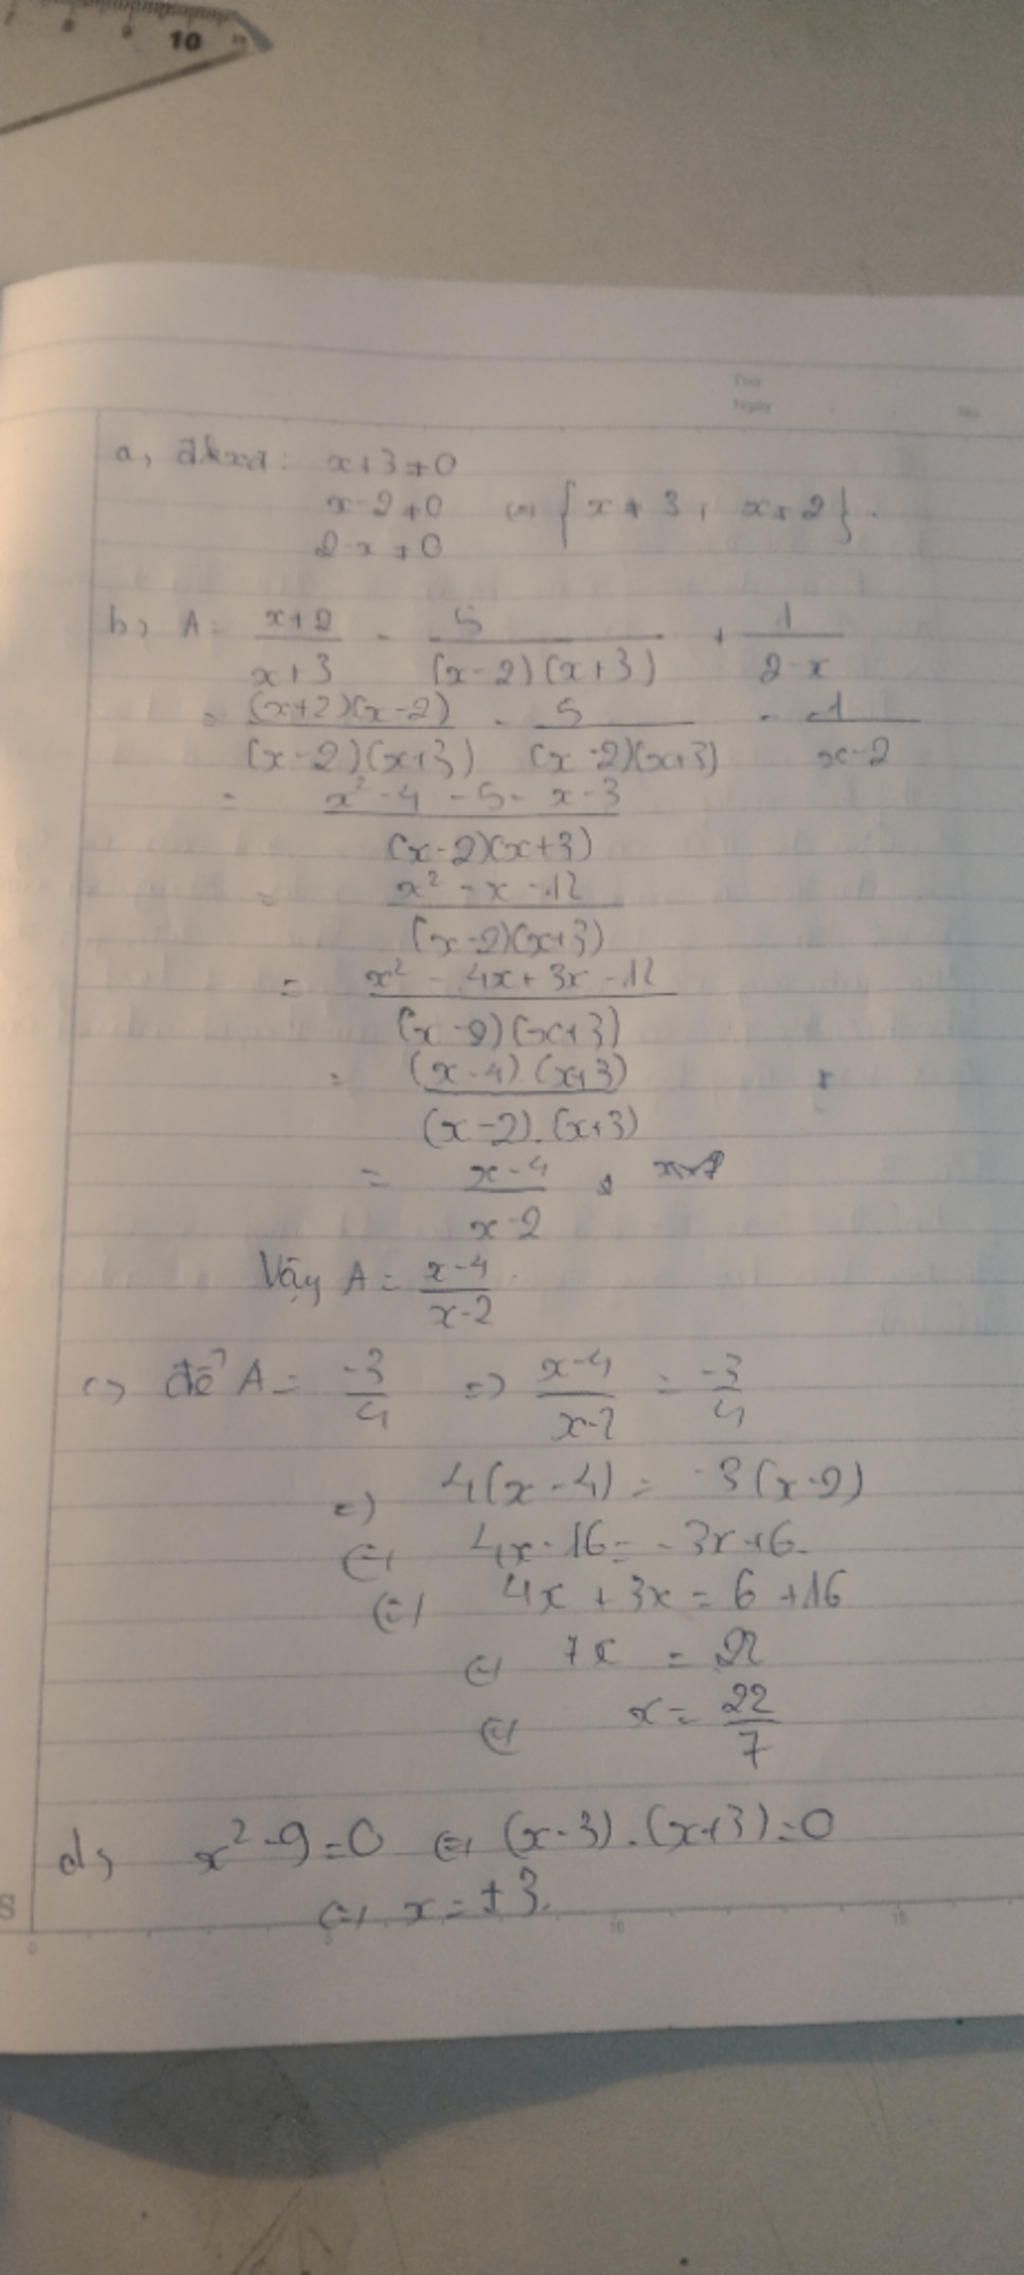 9 10
Thứ
Ngày No.
a, đkxđ: x+3≠0
x-2≠0 <=> { x≠3, x≠2}.
2-x≠0
b, A = x+2/x+3 - 5/(x-2)(x+3) + 1/2-x
= (x+2)(x-2)/(x-2)(x+3) - 5/(x-2)(x+3) - 1/x-2
= x²-4-5-x-3/(x-2)(x+3)
= x²-x-12/(x-2)(x+3)
= x²-4x+3x-12/(x-2)(x+3)
= (x-4)(x+3)/(x-2).(x+3)
= x-4/x-2
Vậy A = x-4/x-2
c, để A = -3/4 => x-4/x-2 = -3/4
=> 4(x-4) = -3(x-2)
<=> 4x-16 = -3x+6
<=> 4x+3x = 6+16
<=> 7x = 22
<=> x = 22/7
d, x²-9=0 <=> (x-3).(x+3)=0
<=> x = ±3.
S
0 10 15